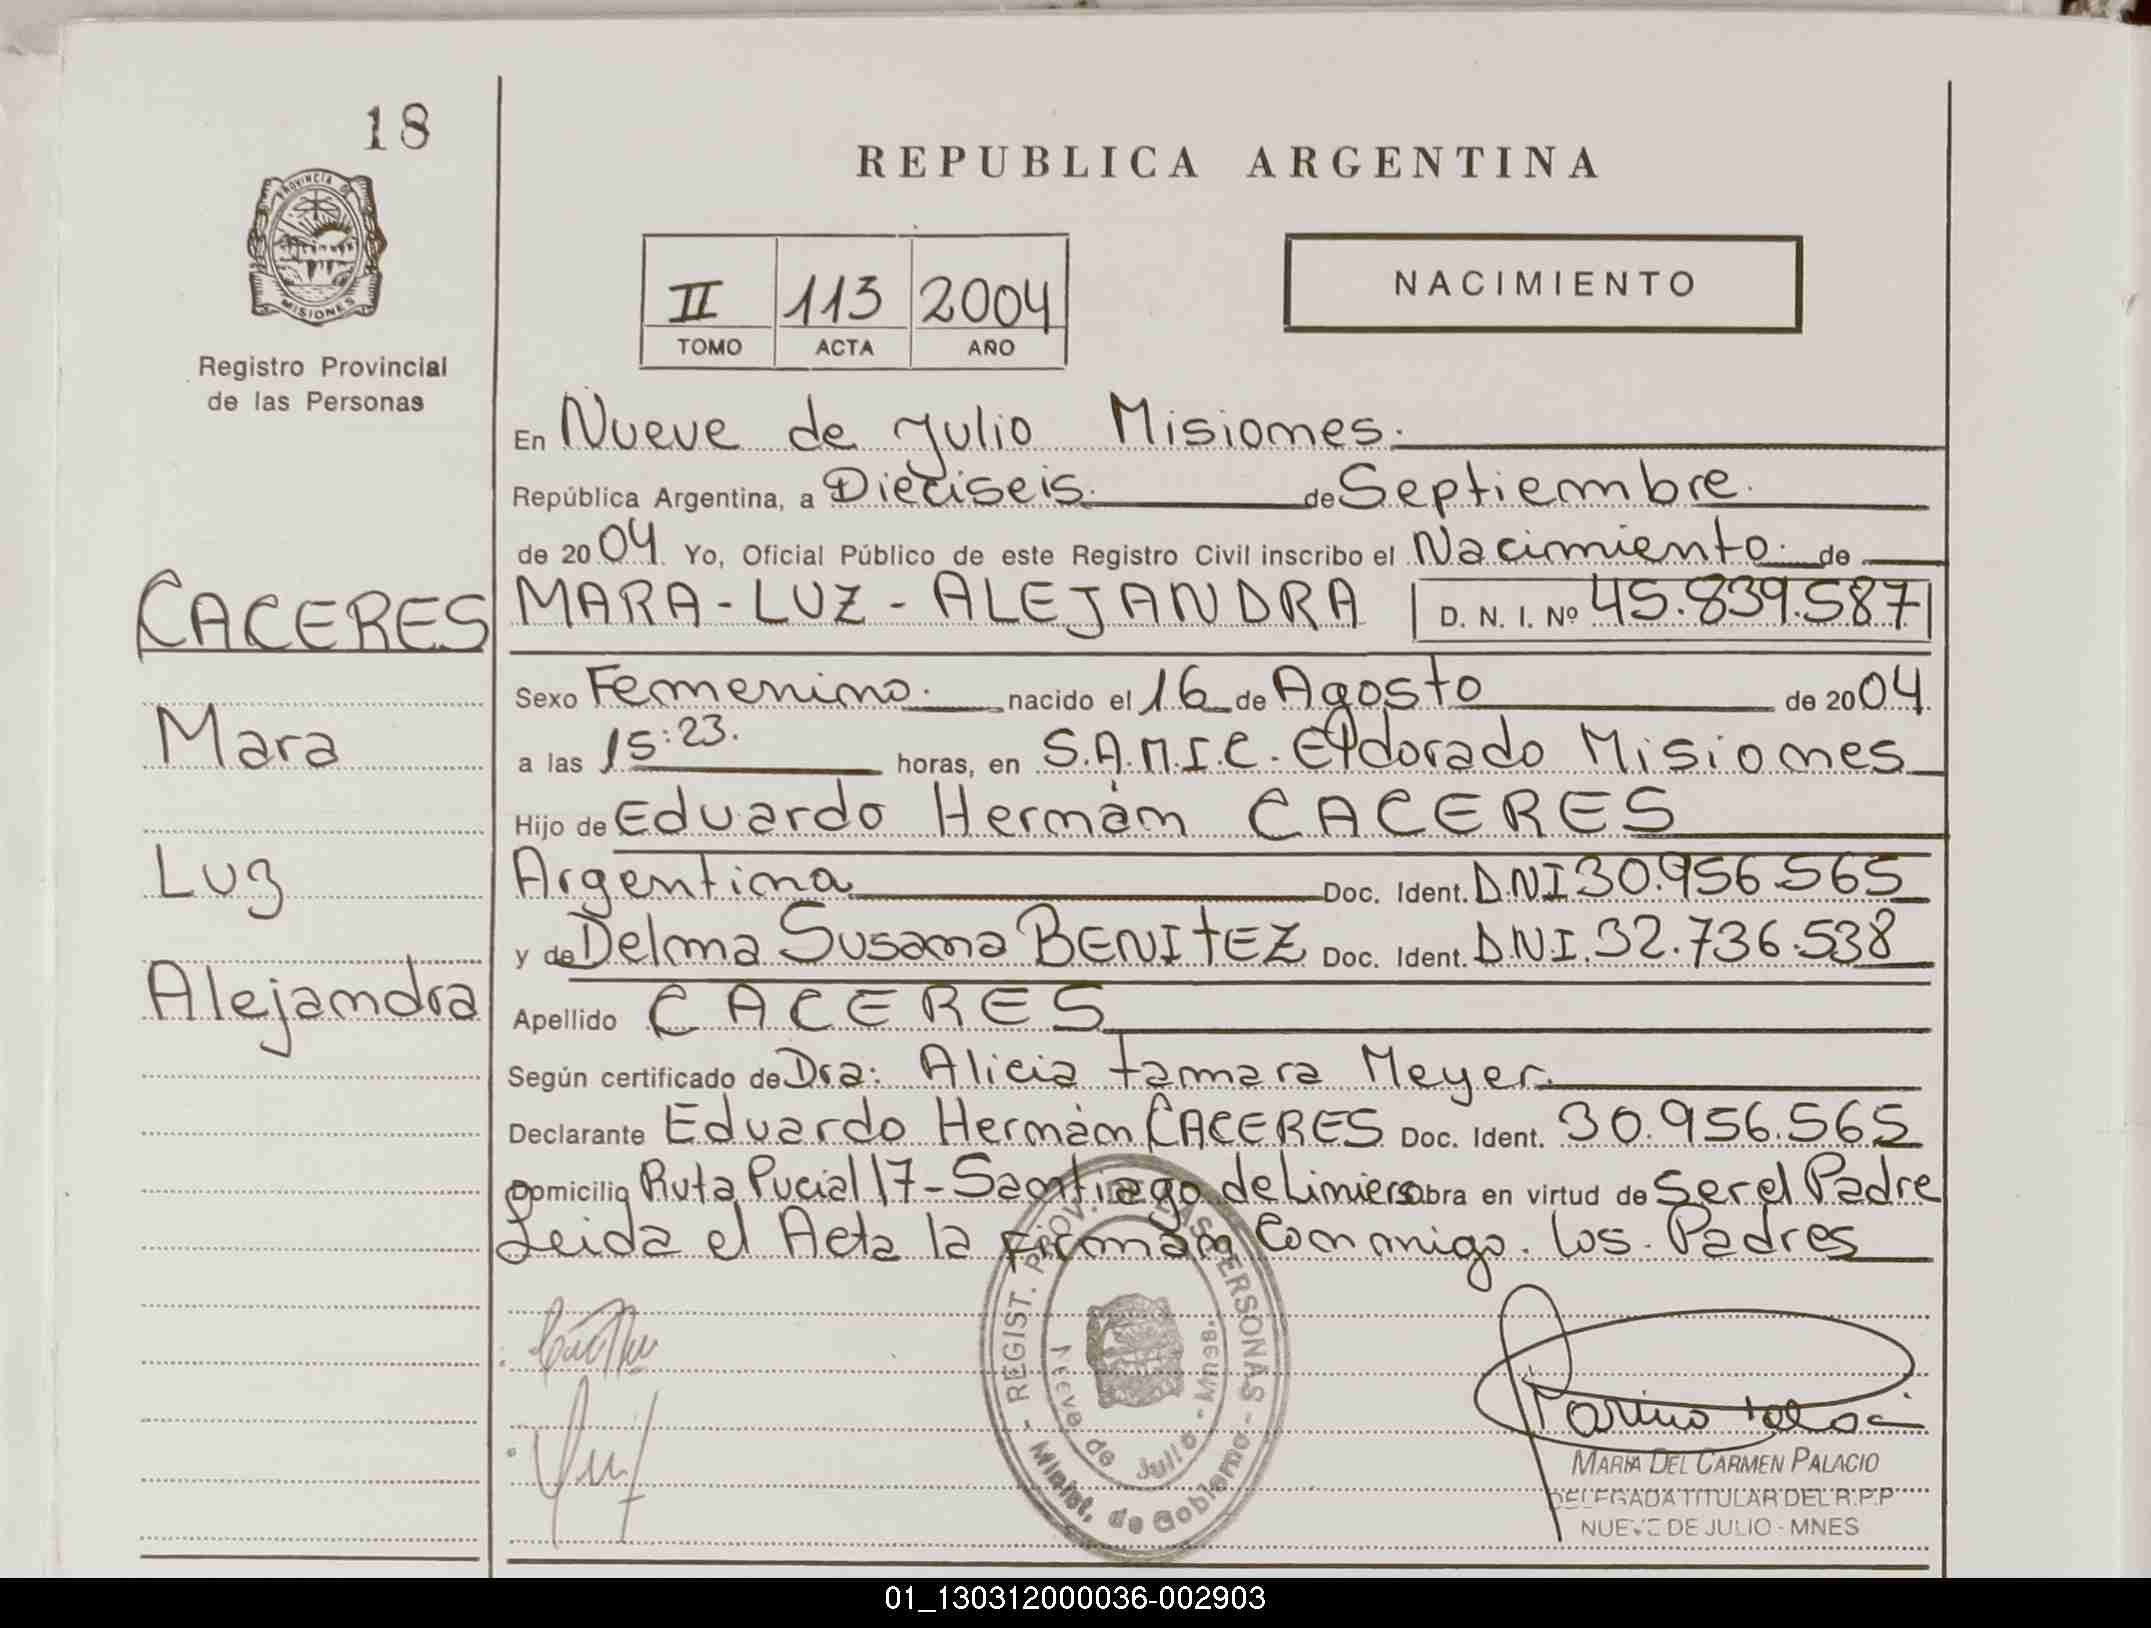 18
PROVINCIA DE
MISIONES
Registro Provincial
de las Personas
CACERES
Mara
Luz
Alejandra
REPUBLICA ARGENTINA
II 113 2004
TOMO ACTA AÑO
NACIMIENTO
En Nueve de Julio Misiones.
República Argentina, a Dieciseis. de Septiembre.
de 2004. Yo, Oficial Público de este Registro Civil inscribo el Nacimiento. de
MARA - LUZ - ALEJANDRA D. N. I. Nº 45.839.587
Sexo Femenino. nacido el 16 de Agosto de 2004.
a las 15:23. horas, en S.A.M.I.C. Eldorado Misiones
Hijo de Eduardo Hernán CACERES
Argentina Doc. Ident. D.N.I 30.956.565
y de Delma Susana BENITEZ Doc. Ident. D.N.I. 32.736.538
Apellido CACERES
Según certificado de Dra: Alicia Tamara Meyer.
Declarante Eduardo Hernán CACERES Doc. Ident. 30.956.565
Domicilio Ruta Pucial 17 - Santiago de Liniers obra en virtud de Ser el Padre
Leida el Acta la firmán Conmigo. los. Padres
- REGIST. PROV. DE LAS PERSONAS -
Nueve de Julio - Mnes.
Minist. de Gobierno
MARIA DEL CARMEN PALACIO
DELEGADA TITULAR DEL R.P.P
NUEVE DE JULIO - MNES
01_130312000036-002903